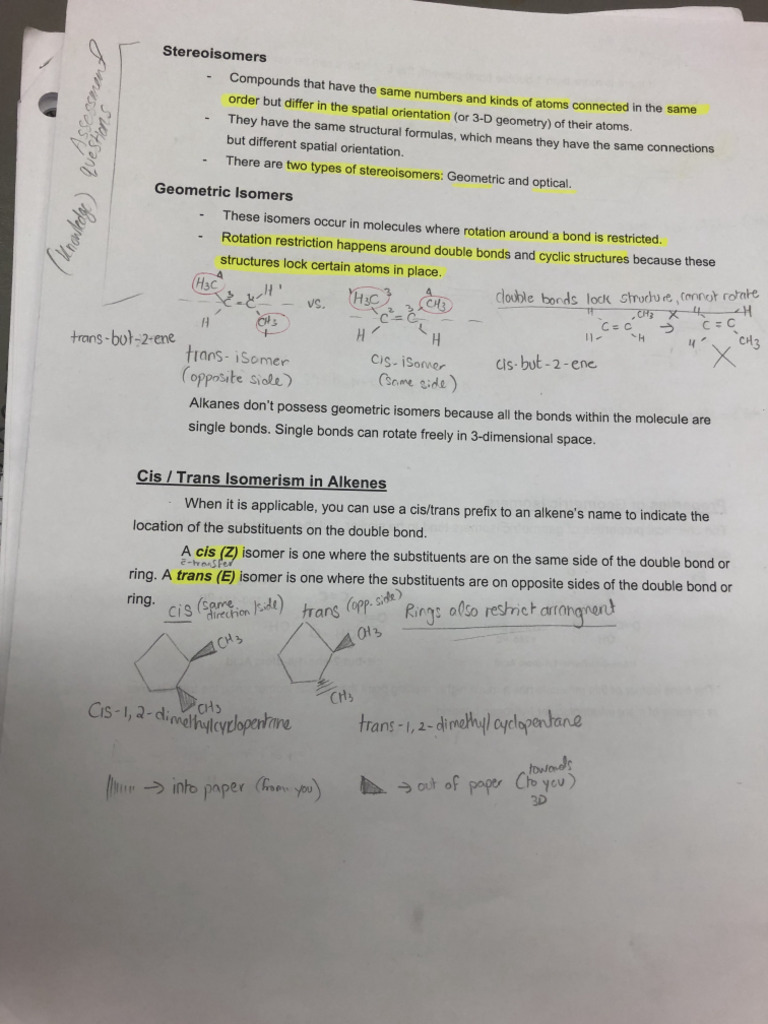 Assessment
questions
(knowledge)
Stereoisomers
- Compounds that have the same numbers and kinds of atoms connected in the same
order but differ in the spatial orientation (or 3-D geometry) of their atoms.
- They have the same structural formulas, which means they have the same connections
but different spatial orientation.
- There are two types of stereoisomers: Geometric and optical.
Geometric Isomers
- These isomers occur in molecules where rotation around a bond is restricted.
- Rotation restriction happens around double bonds and cyclic structures because these
structures lock certain atoms in place.
H3C H
C=C
H CH3
vs.
H3C CH3
C=C
H H
double bonds lock structure, cannot rotate
CH3
C=C → C=C
H CH3
trans-but-2-ene
trans-isomer cis-isomer cis-but-2-ene
(opposite side) (same side)
Alkanes don't possess geometric isomers because all the bonds within the molecule are
single bonds. Single bonds can rotate freely in 3-dimensional space.
Cis / Trans Isomerism in Alkenes
When it is applicable, you can use a cis/trans prefix to an alkene's name to indicate the
location of the substituents on the double bond.
A cis (Z) isomer is one where the substituents are on the same side of the double bond or
ring. A trans (E) isomer is one where the substituents are on opposite sides of the double bond or
ring.
cis (same direction/side) trans (opp. side) Rings also restrict arrangment
CH3 CH3
CH3 CH3
Cis-1,2-dimethylcyclopentane trans-1,2-dimethylcyclopentane
→ into paper (from you) → out of paper (towards to you)
3D